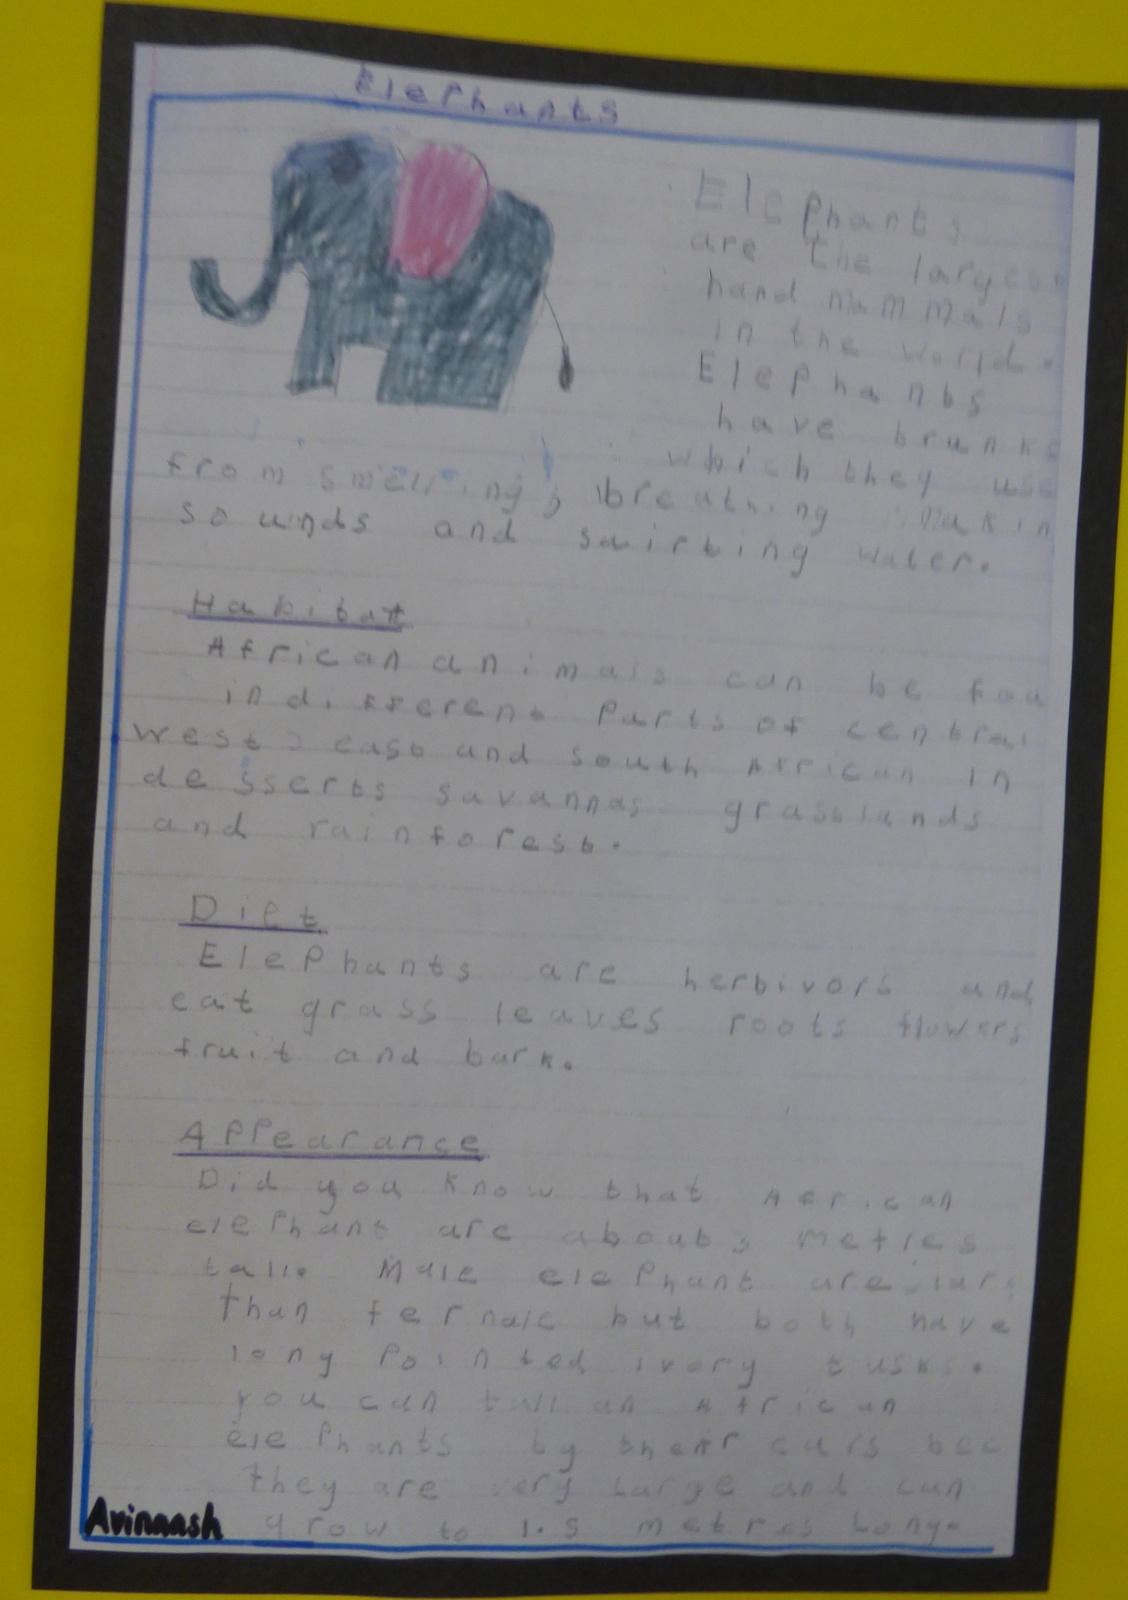 Elephants
Elephants
are the largest
hand mammals
in the world.
Elephants
have brunks
which they use
from smelling, breathing makin
sounds and sairting water.
Habitat
African animals can be fou
in different parts of central
west, east and south African in
desserts savannas grasslands
and rainforest.
Diet
Elephants are herbivors and
eat grass leaves roots flowers
fruit and bark.
Appearance
Did you know that African
elephant are about 3 metres
tall. Male elephant are larg
than female but both have
long pointed ivory tusks.
You can tall an African
elephants by their ears bec
they are very large and can
grow to 1.5 metres long.
Avinaash